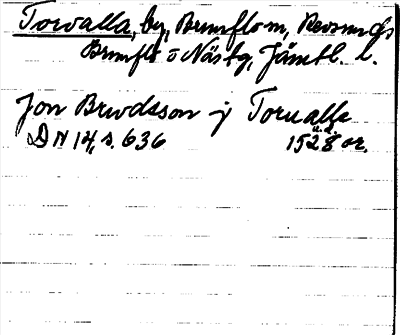 Torvalla, by, Brunflo sn, Revsunds
Brunflo o Näs tg, Jämtl. l.
Jon Brvdsson j Torualla
DN 14, s. 636 u.d. 1528 or.